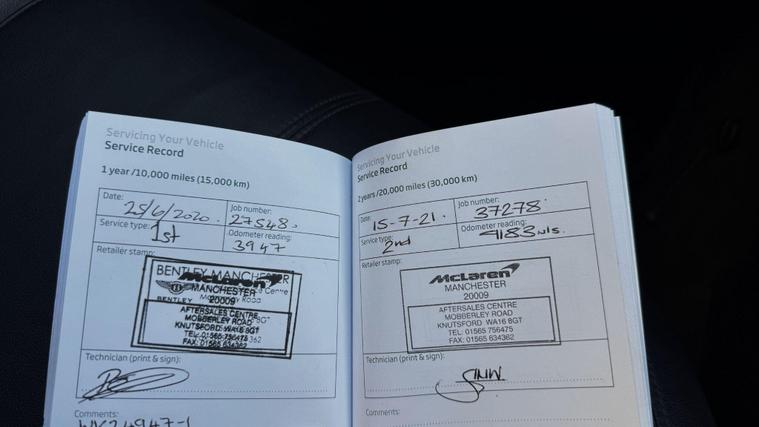 Servicing Your Vehicle
Service Record
1 year/10,000 miles (15,000 km)
Date: 25/6/2020.
Job number: 27548.
Service type: 1st
Odometer reading: 3947
Retailer stamp:
BENTLEY MANCHESTER
McLaren
MANCHESTER
BENTLEY
20009
AFTERSALES CENTRE
MOBBERLEY ROAD
KNUTSFORD WA16 8GT
TEL: 01565 756475
FAX: 01565 634362
Technician (print & sign):
Comments:
Servicing Your Vehicle
Service Record
2 years/20,000 miles (30,000 km)
Date: 15-7-21.
Job number: 37278.
Service type: 2nd
Odometer reading: 9183 mls.
Retailer stamp:
McLaren
MANCHESTER
20009
AFTERSALES CENTRE
MOBBERLEY ROAD
KNUTSFORD WA16 8GT
TEL: 01565 756475
FAX: 01565 634362
Technician (print & sign):
Comments: